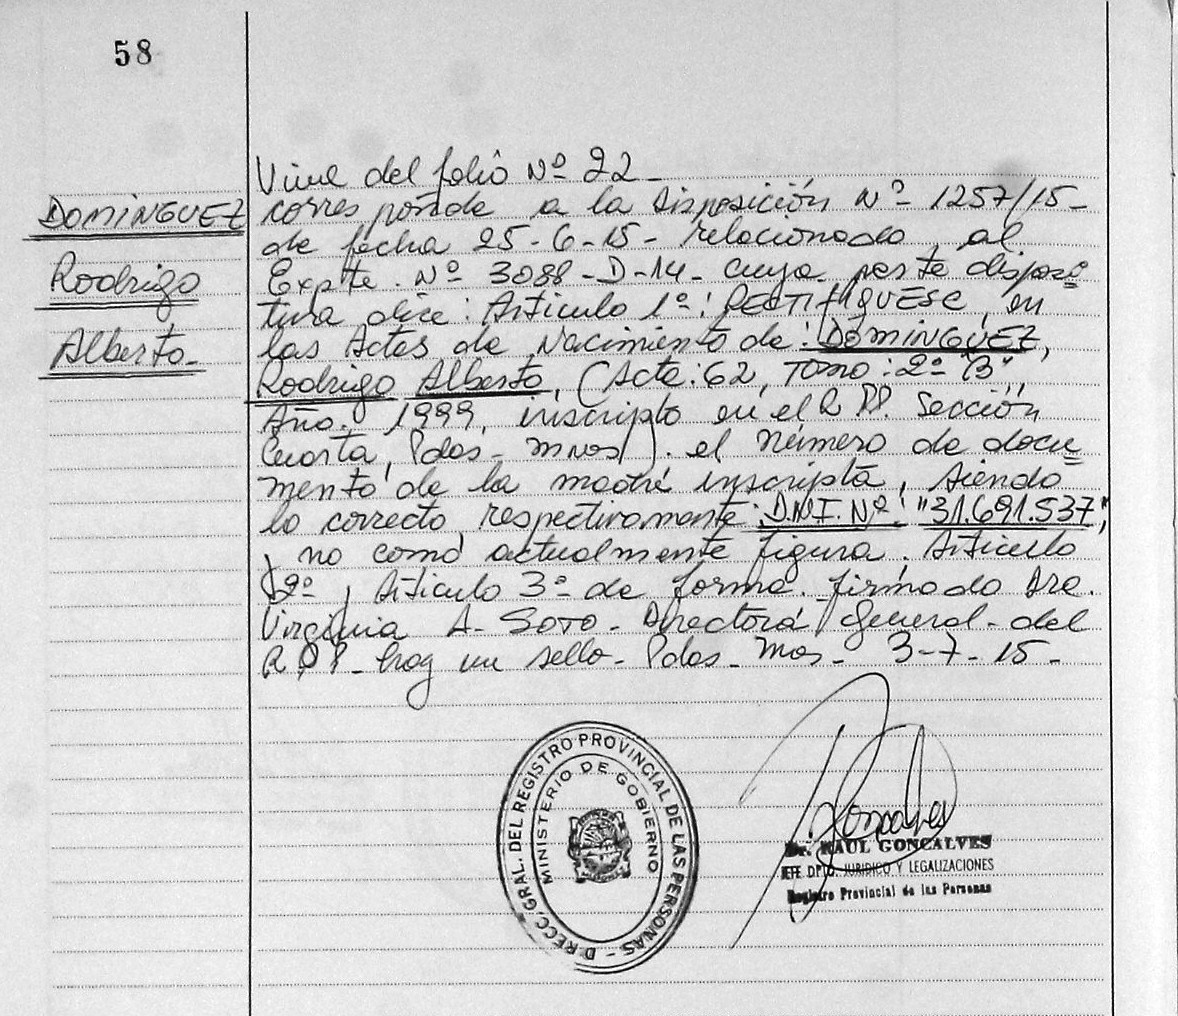 58
DOMINGUEZ
Rodrigo
Alberto.-
Viene del folio Nº 22_
corresponde a la Disposición Nº 1257/15-
de fecha 25-6-15- relacionado al
Expte. Nº 3088-D-14- cuya parte disposi=
tiva dice: Articulo 1º: RECTIFIQUESE, en
las Actas de Nacimiento de: DOMINGUEZ,
Rodrigo Alberto, (Acta: 62, Tomo: 2º "B"
Año: 1999, inscripto en el R.P.P. Sección
Cuarta, Pdas- Mnes). el número de docu=
mento de la madre inscripta, siendo
lo correcto respectivamente: D.N.I. Nº: "31.691.537",
y no como actualmente figura. Articulo
2º y Articulo 3º de forma. firmado Dra.
Virginia A. SOTO- Directora General- del
R.P.P- hay un sello- Pdas- Mnes- 3-7-15-
DIRECC. GRAL. DEL REGISTRO PROVINCIAL DE LAS PERSONAS -
MINISTERIO DE GOBIERNO
Dr. RAUL GONCALVES
JEFE DPTO. JURIDICO Y LEGALIZACIONES
Registro Provincial de las Personas